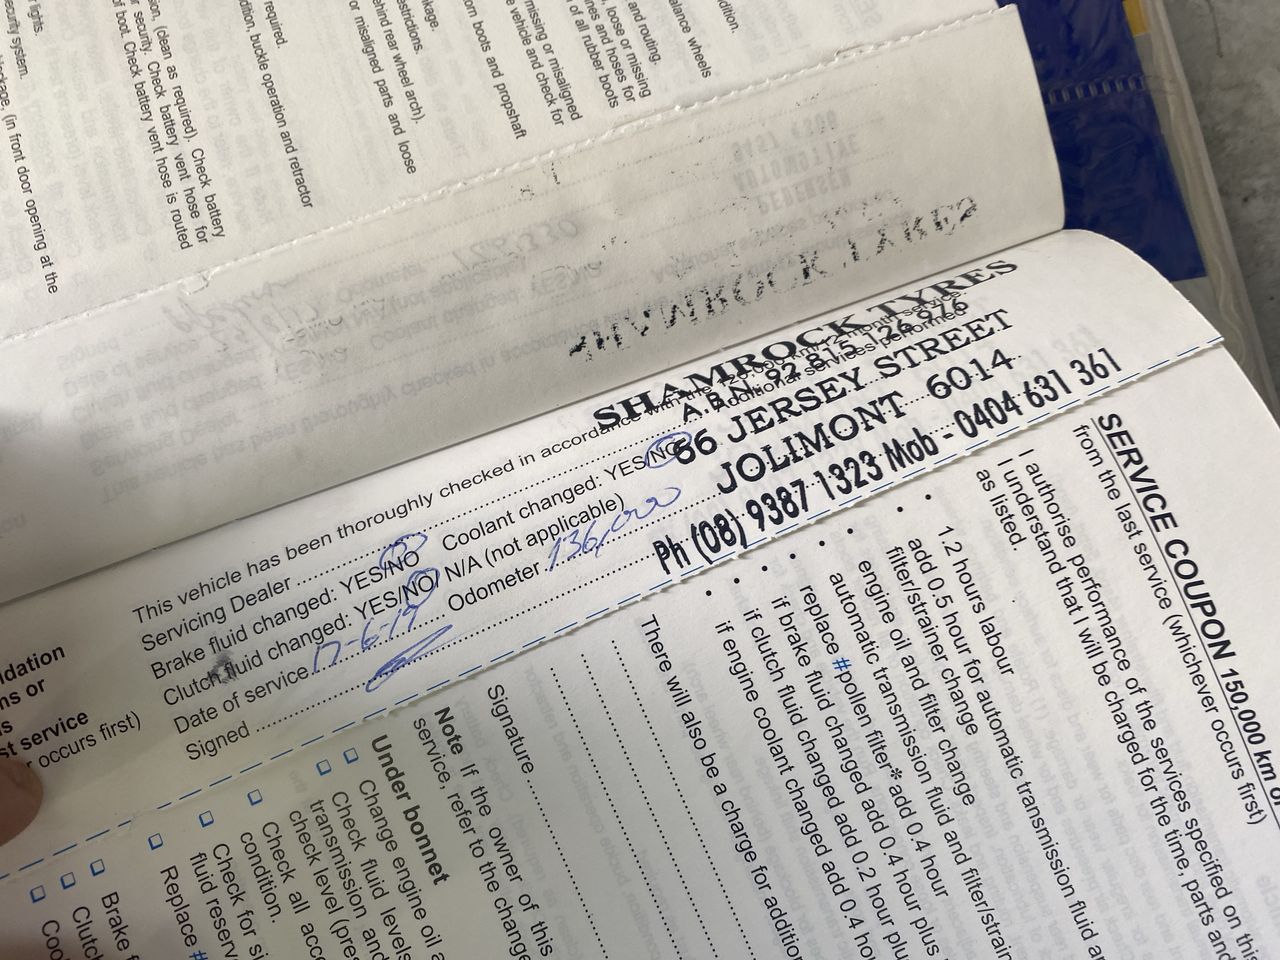 ecurity system.
ockage, (in front door opening at the
sion, (clean as required). Check battery
for security. Check battery vent hose for
of boot. Check battery vent hose is routed
required.
dition, buckle operation and retractor
kage.
estrictions.
ehind rear wheel arch).
or misaligned parts and loose
orn boots and propshaft
missing or misaligned
e vehicle and check for
and routing.
, loose or missing
nes and hoses for
of all rubber boots
alance wheels
dition.
SHAMROCK TYRES
A.B.N. 92 815 126 976
66 JERSEY STREET
JOLIMONT 6014
Ph (08) 9387 1323 Mob - 0404 631 361
This vehicle has been thoroughly checked in accordance with the 120,000 km/12 month service.
Servicing Dealer
Additional services performed
Brake fluid changed: YES/NO Coolant changed: YES/NO
Clutch fluid changed: YES/NO/ N/A (not applicable)
Date of service 17-6-19 Odometer 136,000
Signed
idation
ns or
st service
r occurs first)
SERVICE COUPON 150,000 km o
from the last service (whichever occurs first)
I authorise performance of the services specified on this
I understand that I will be charged for the time, parts and
as listed.
• 1.2 hours labour
• add 0.5 hour for automatic transmission fluid a
filter/strainer change
• engine oil and filter change
• automatic transmission fluid and filter/strain
• replace #pollen filter* add 0.4 hour
• if brake fluid changed add 0.4 hour plus
• if clutch fluid changed add 0.2 hour plu
• if engine coolant changed add 0.4 ho
There will also be a charge for addition
Signature
Note If the owner of this
service, refer to the change
Under bonnet
Change engine oil a
Check fluid levels
transmission and
check level (pres
Check all acce
condition.
Check for si
fluid reserv
Replace #
Brake f
Clutch
Coo